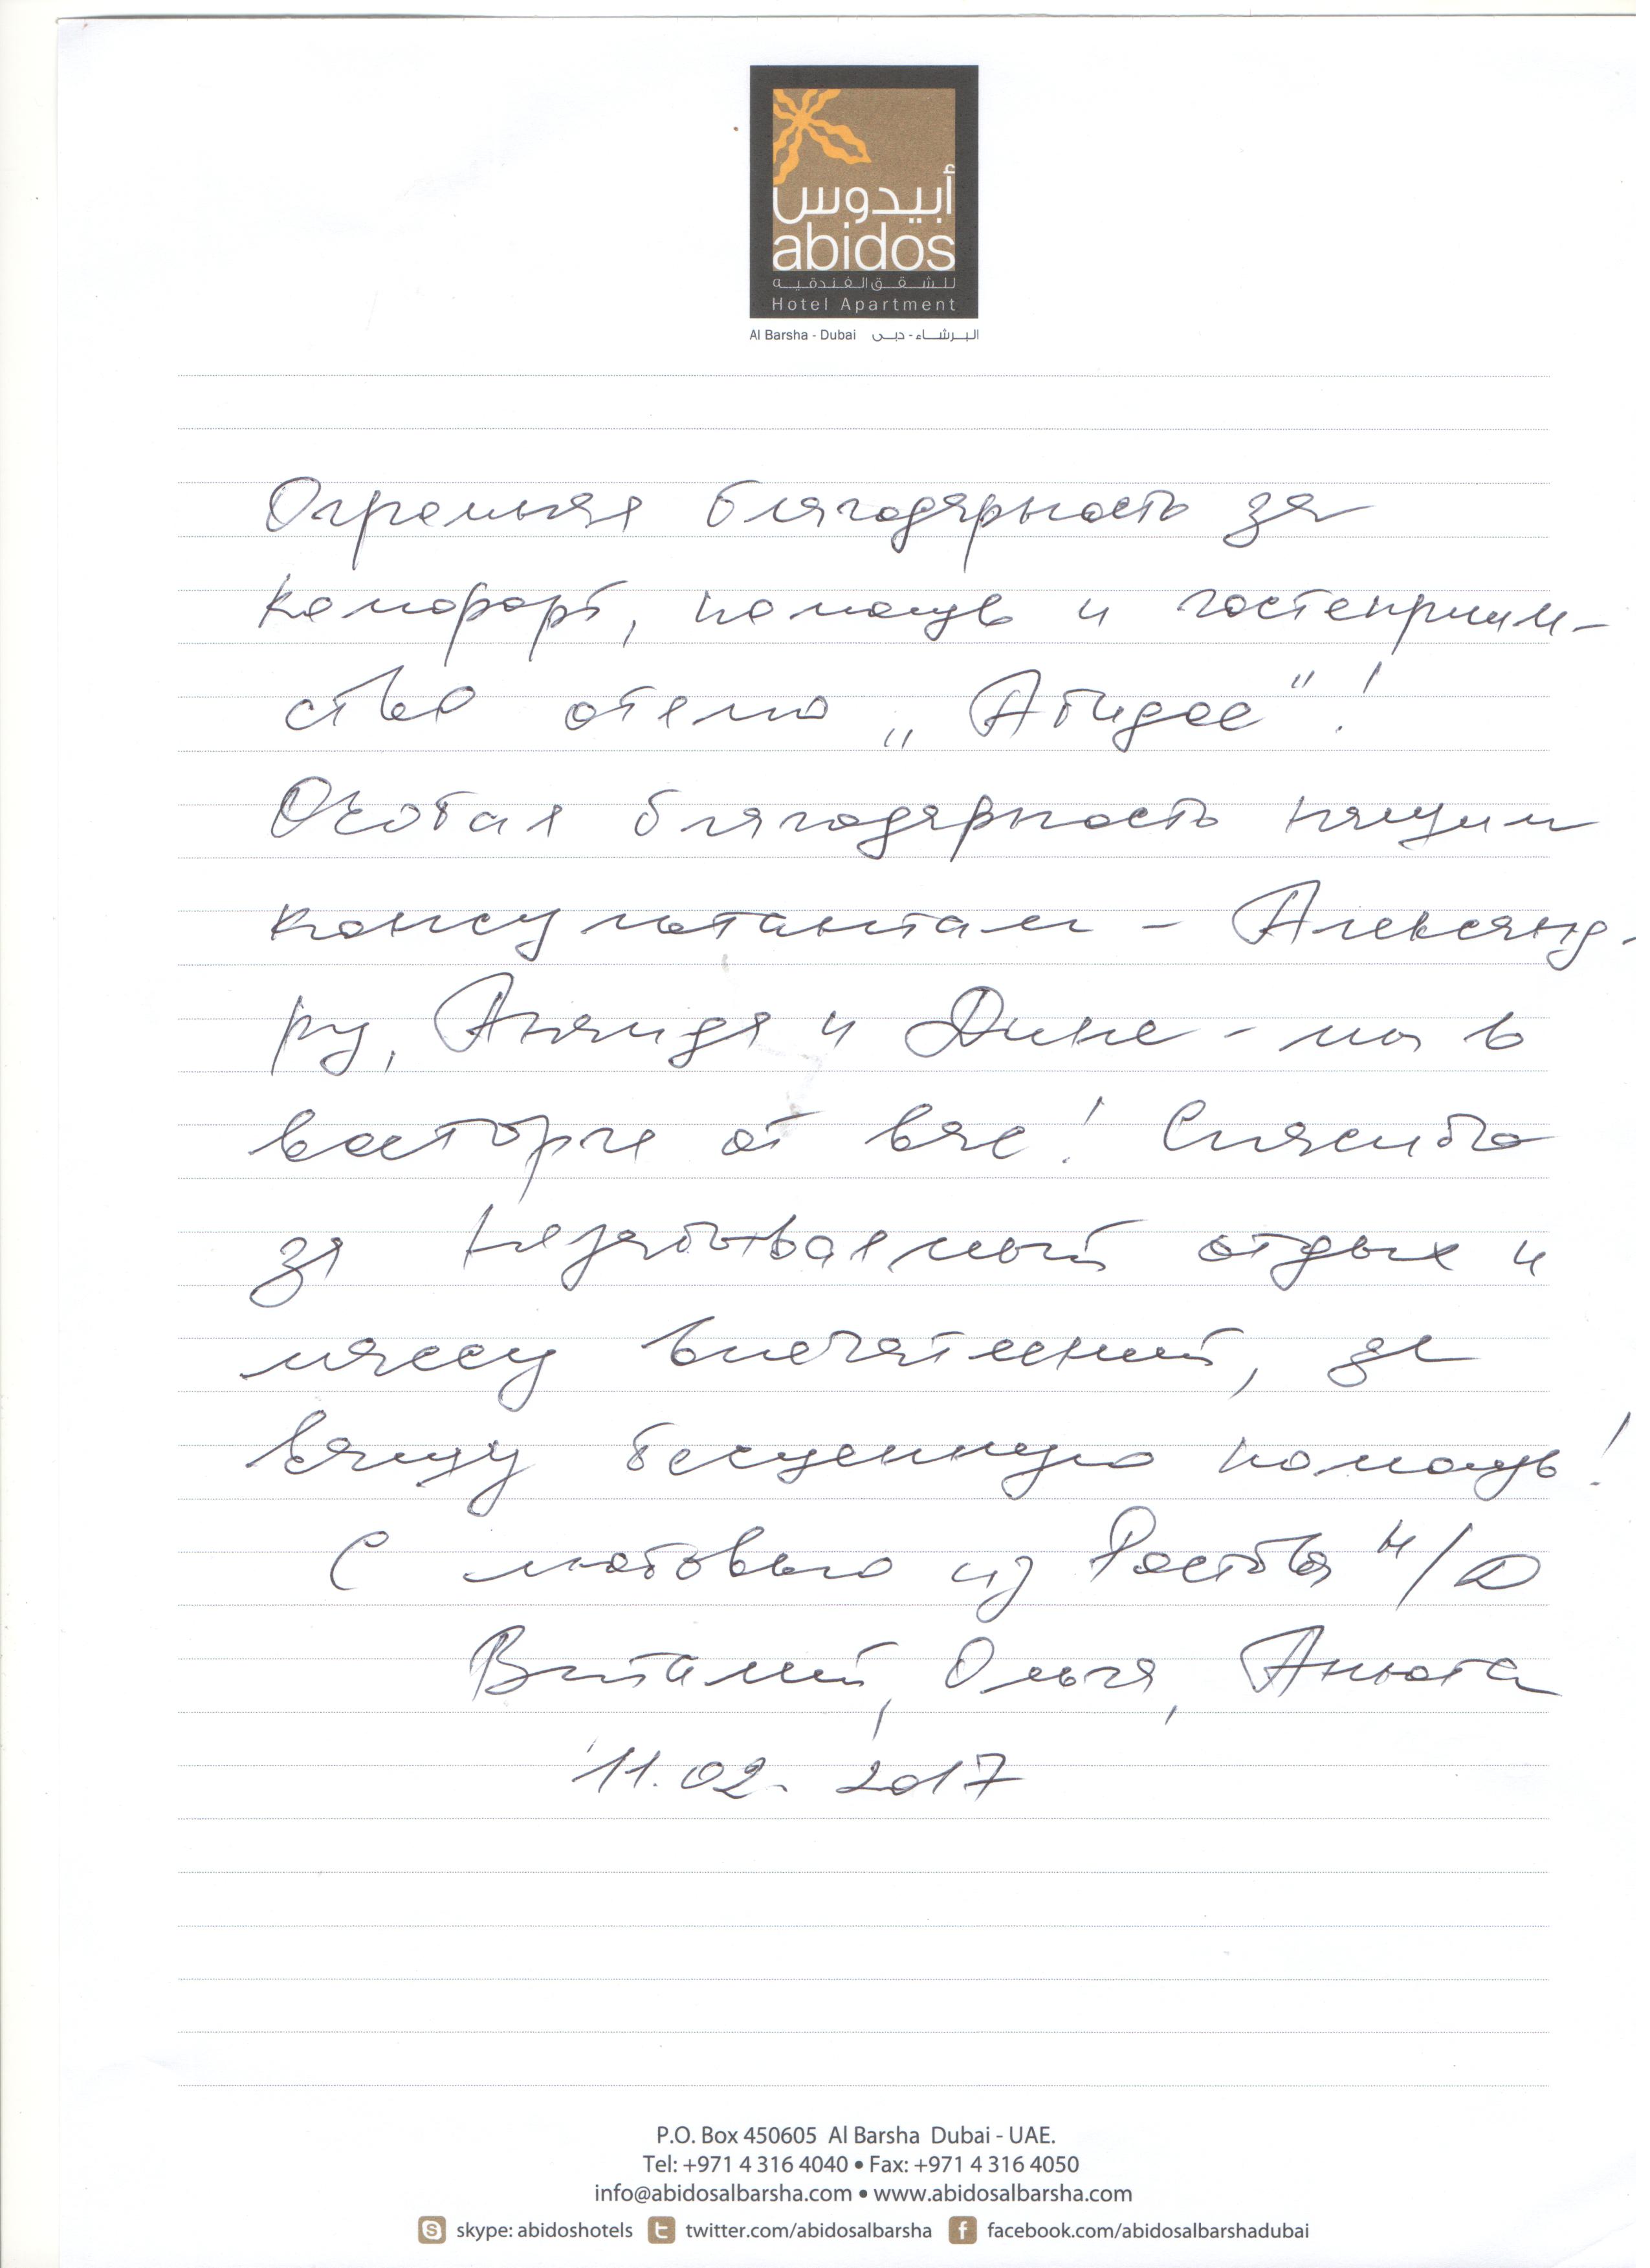 أبيدوس
abidos
للشقق الفندقية
Hotel Apartment
Al Barsha - Dubai البرشاء - دبي
Огромная благодарность за
комфорт, помощь и гостеприим-
ство отелю „Абидос"!
Особая благодарность нашим
консультантам - Александ-
ру, и Дине - мы в
восторге от вас! Спасибо
за незабываемый отдых и
массу впечатлений, за
вашу бесценную помощь!
С любовью из Ростова н/Д
Виталий, Ольга, Анюта
11.02.2017
P.O. Box 450605 Al Barsha Dubai - UAE.
Tel: +971 4 316 4040 • Fax: +971 4 316 4050
info@abidosalbarsha.com • www.abidosalbarsha.com
skype: abidoshotels twitter.com/abidosalbarsha facebook.com/abidosalbarshadubai